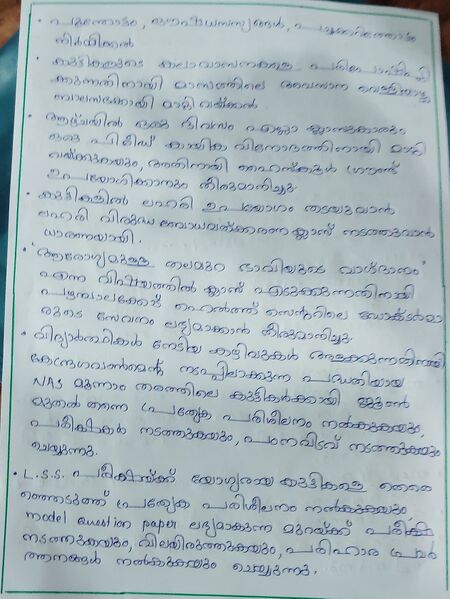 • പൂന്തോട്ടം, ഔഷധസസ്യങ്ങൾ, പച്ചക്കറിത്തോട്ടം
നിർമ്മിക്കൽ
• കുട്ടികളുടെ കലാവാസനകളെ പരിപോഷിപ്പി
ക്കുന്നതിനായി മാസത്തിലെ അവസാന വെള്ളിയാഴ്ച
ബാലസഭക്കായി മാറ്റി വയ്ക്കൽ
• ആഴ്ചയിൽ ഒരു ദിവസം എല്ലാ ക്ലാസുകാരും
ഒരു പിരീഡ് കായിക വിനോദത്തിനായി മാറ്റി
വയ്ക്കുകയും, അതിനായി ഹൈസ്കൂൾ ഗ്രൗണ്ട്
ഉപയോഗിക്കാനും തീരുമാനിച്ചു
• കുട്ടികളിൽ ലഹരി ഉപയോഗം തടയുവാൻ
ലഹരി വിരുദ്ധ ബോധവൽക്കരണ ക്ലാസ് നടത്തുവാൻ
ധാരണയായി.
• "ആരോഗ്യമുള്ള തലമുറ ഭാവിയുടെ വാഗ്ദാനം"
എന്ന വിഷയത്തിൽ ക്ലാസ് എടുക്കുന്നതിനായി
പഴമ്പാലക്കോട് ഹെൽത്ത് സെന്ററിലെ ഡോക്ടർമാ
രുടെ സേവനം ലഭ്യമാക്കാൻ തീരുമാനിച്ചു
• വിദ്യാർത്ഥികൾ നേടിയ കഴിവുകൾ അളക്കുന്നതിനായി
കേന്ദ്രഗവൺമെന്റ് നടപ്പിലാക്കുന്ന പദ്ധതിയായ
NAS മൂന്നാം തരത്തിലെ കുട്ടികൾക്കായി ജൂൺ
മുതൽ തന്നെ പ്രത്യേക പരിശീലനം നൽകുകയും,
പരീക്ഷകൾ നടത്തുകയും, പഠനവിടവ് നടത്തുകയും
ചെയ്യുന്നു.
• L.S.S. പരീക്ഷയ്ക്ക് യോഗ്യരായ കുട്ടികളെ തെരെ
ഞ്ഞെടുത്ത് പ്രത്യേക പരിശീലനം നൽകുകയും
model question paper ലഭ്യമാകുന്ന മുറയ്ക്ക് പരീക്ഷ
നടത്തുകയും, വിലയിരുത്തുകയും, പരിഹാര പ്രവർ
ത്തനങ്ങൾ നൽകുകയും ചെയ്യുന്നു.